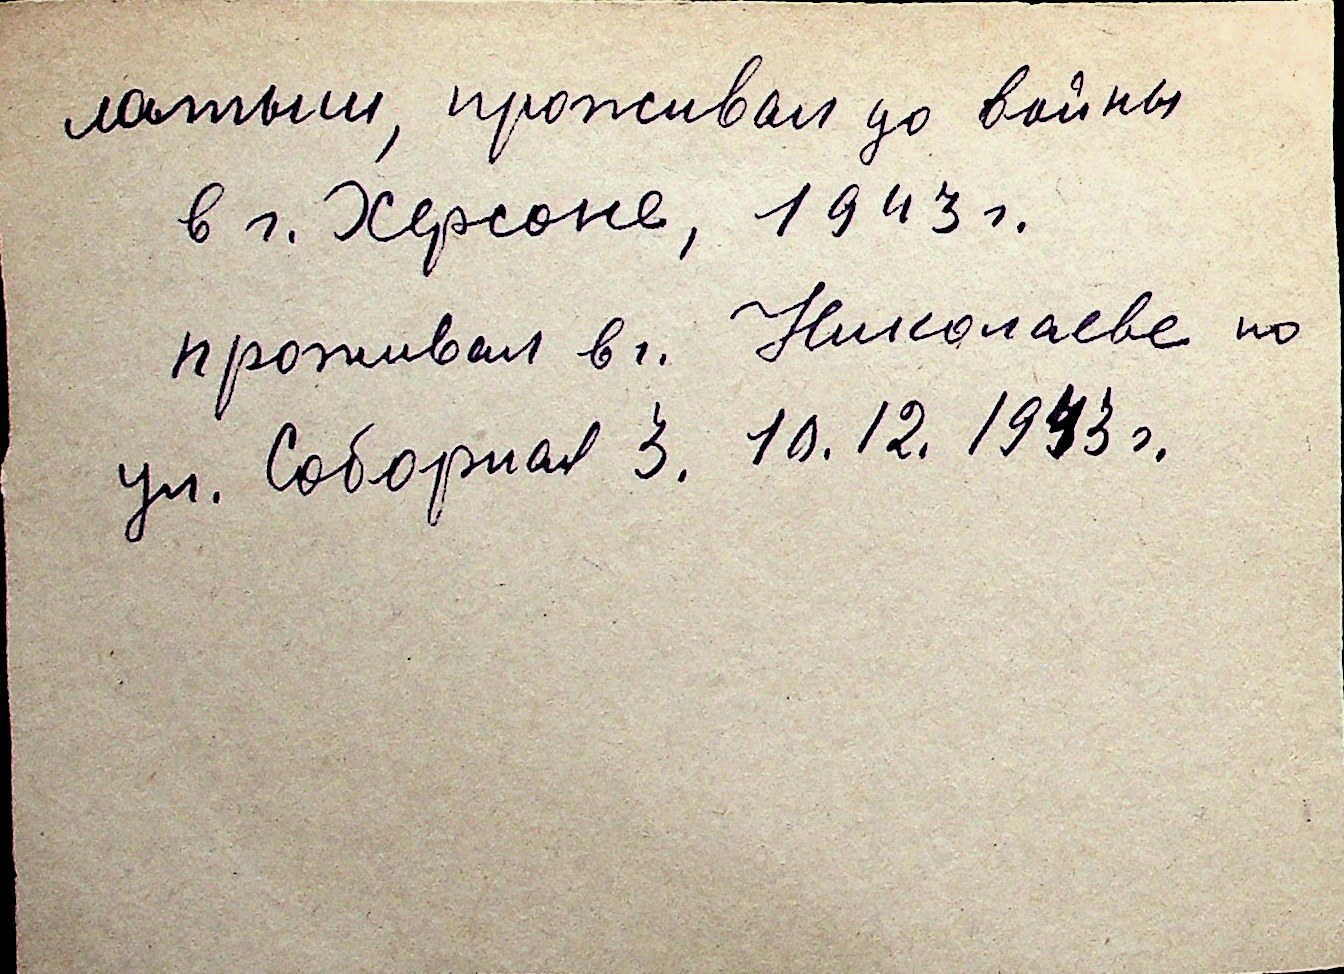 латыш, проживал до войны
в г. Херсоне, 1943 г.
проживал в г. Николаеве по
ул. Соборная 3. 10.12.1943 г.